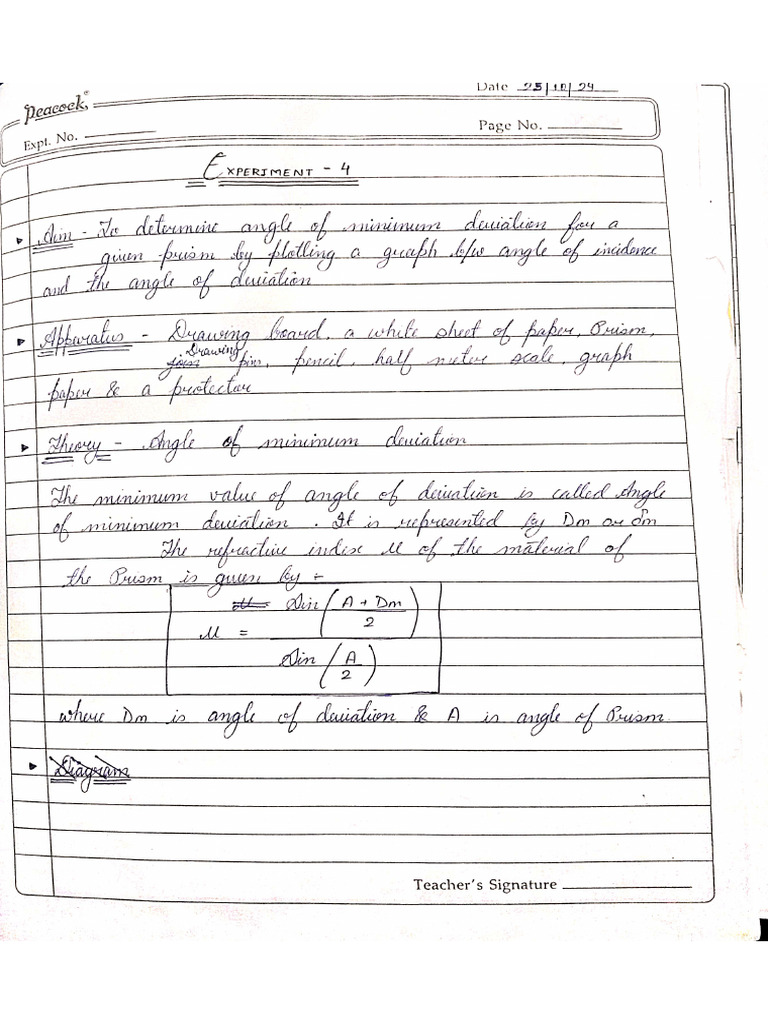 Peacock
Date 25/10/24
Expt. No.
Page No.
EXPERIMENT - 4
Aim - To determine angle of minimum deviation for a
given prism by plotting a graph b/w angle of incidence
and the angle of deviation
Apparatus - Drawing board, a white sheet of paper, Prism,
Drawing pin, pencil, half meter scale, graph
paper & a protector
Theory - Angle of minimum deviation
The minimum value of angle of deivation is called Angle
of minimum deviation. It is represented by Dm or δm
The refractive index μ of the material of
the Prism is given by :-
μ = Sin (A + Dm / 2)
Sin (A / 2)
where Dm is angle of deviation & A is angle of Prism.
Diagram
Teacher's Signature